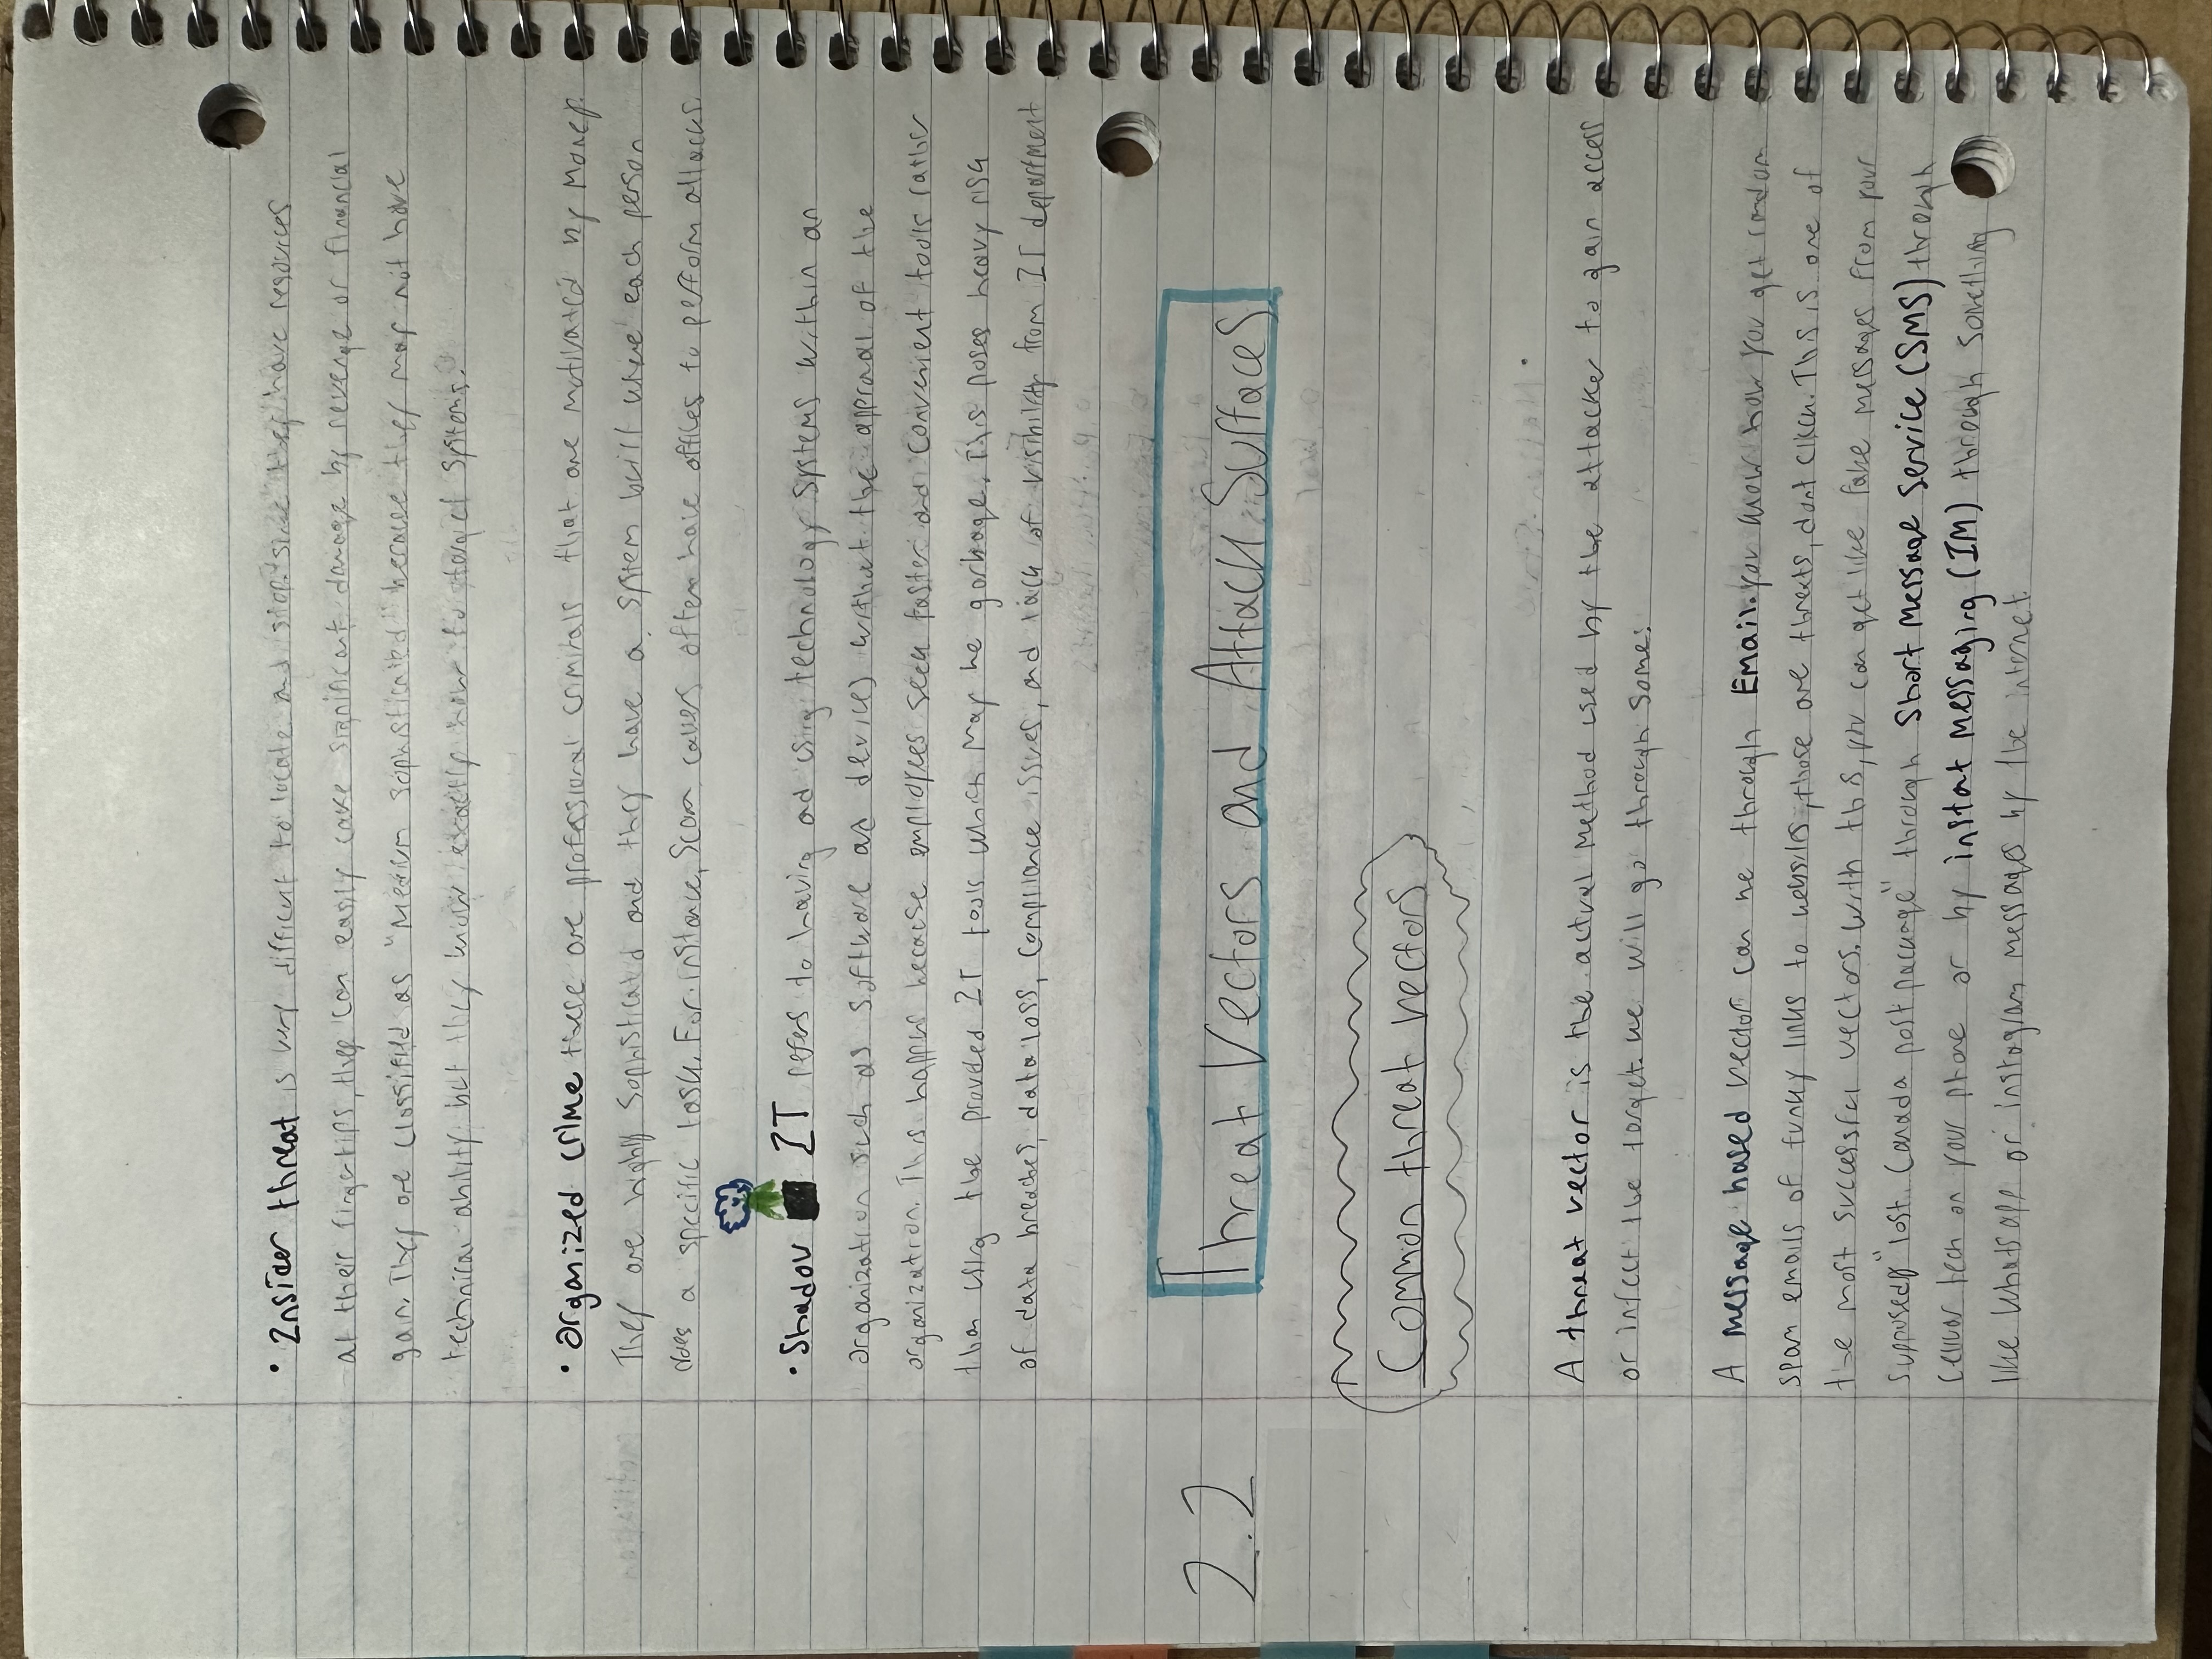 • Insider threat is very difficult to locate and stop. since they have resources
at their fingertips, they can easily cake significant damage by revenge or financial
gain. They are classified as "Medium sophisticated" because they may not have
technical ability but they know exactly how to target systems.
• Organized crime these are professional criminals that are motivated by money.
They are highly sophisticated and they have a system built where each person
does a specific task. For instance, Scam callers often have offices to perform attacks.
• Shadow IT refers to having ad using technology systems within an
organization such as software ad devices without the approval of the
organization. This happens because employees seek faster and convenient tools rather
than using the provided IT tools which may be garbage. This poses heavy risk
of data breaches, data loss, compliance issues, and lack of visibility from IT department
2.2 Threat Vectors and Attack Surfaces
Common threat vectors
A threat vector is the actual method used by the attacker to gain access
or infect the target. we will go through some:
A message based vector can be through Email. you know how you get random
spam emails of funky links to websites, those are threats, dont click. This is one of
the most successful vectors. With this, you can get like fake messages from your
supposedly "lost Canada post package" through Short Message Service (SMS) through
cellular tech on your phone or by instat Messaging (IM) through something
like Whatsapp or instagram messages by the internet.